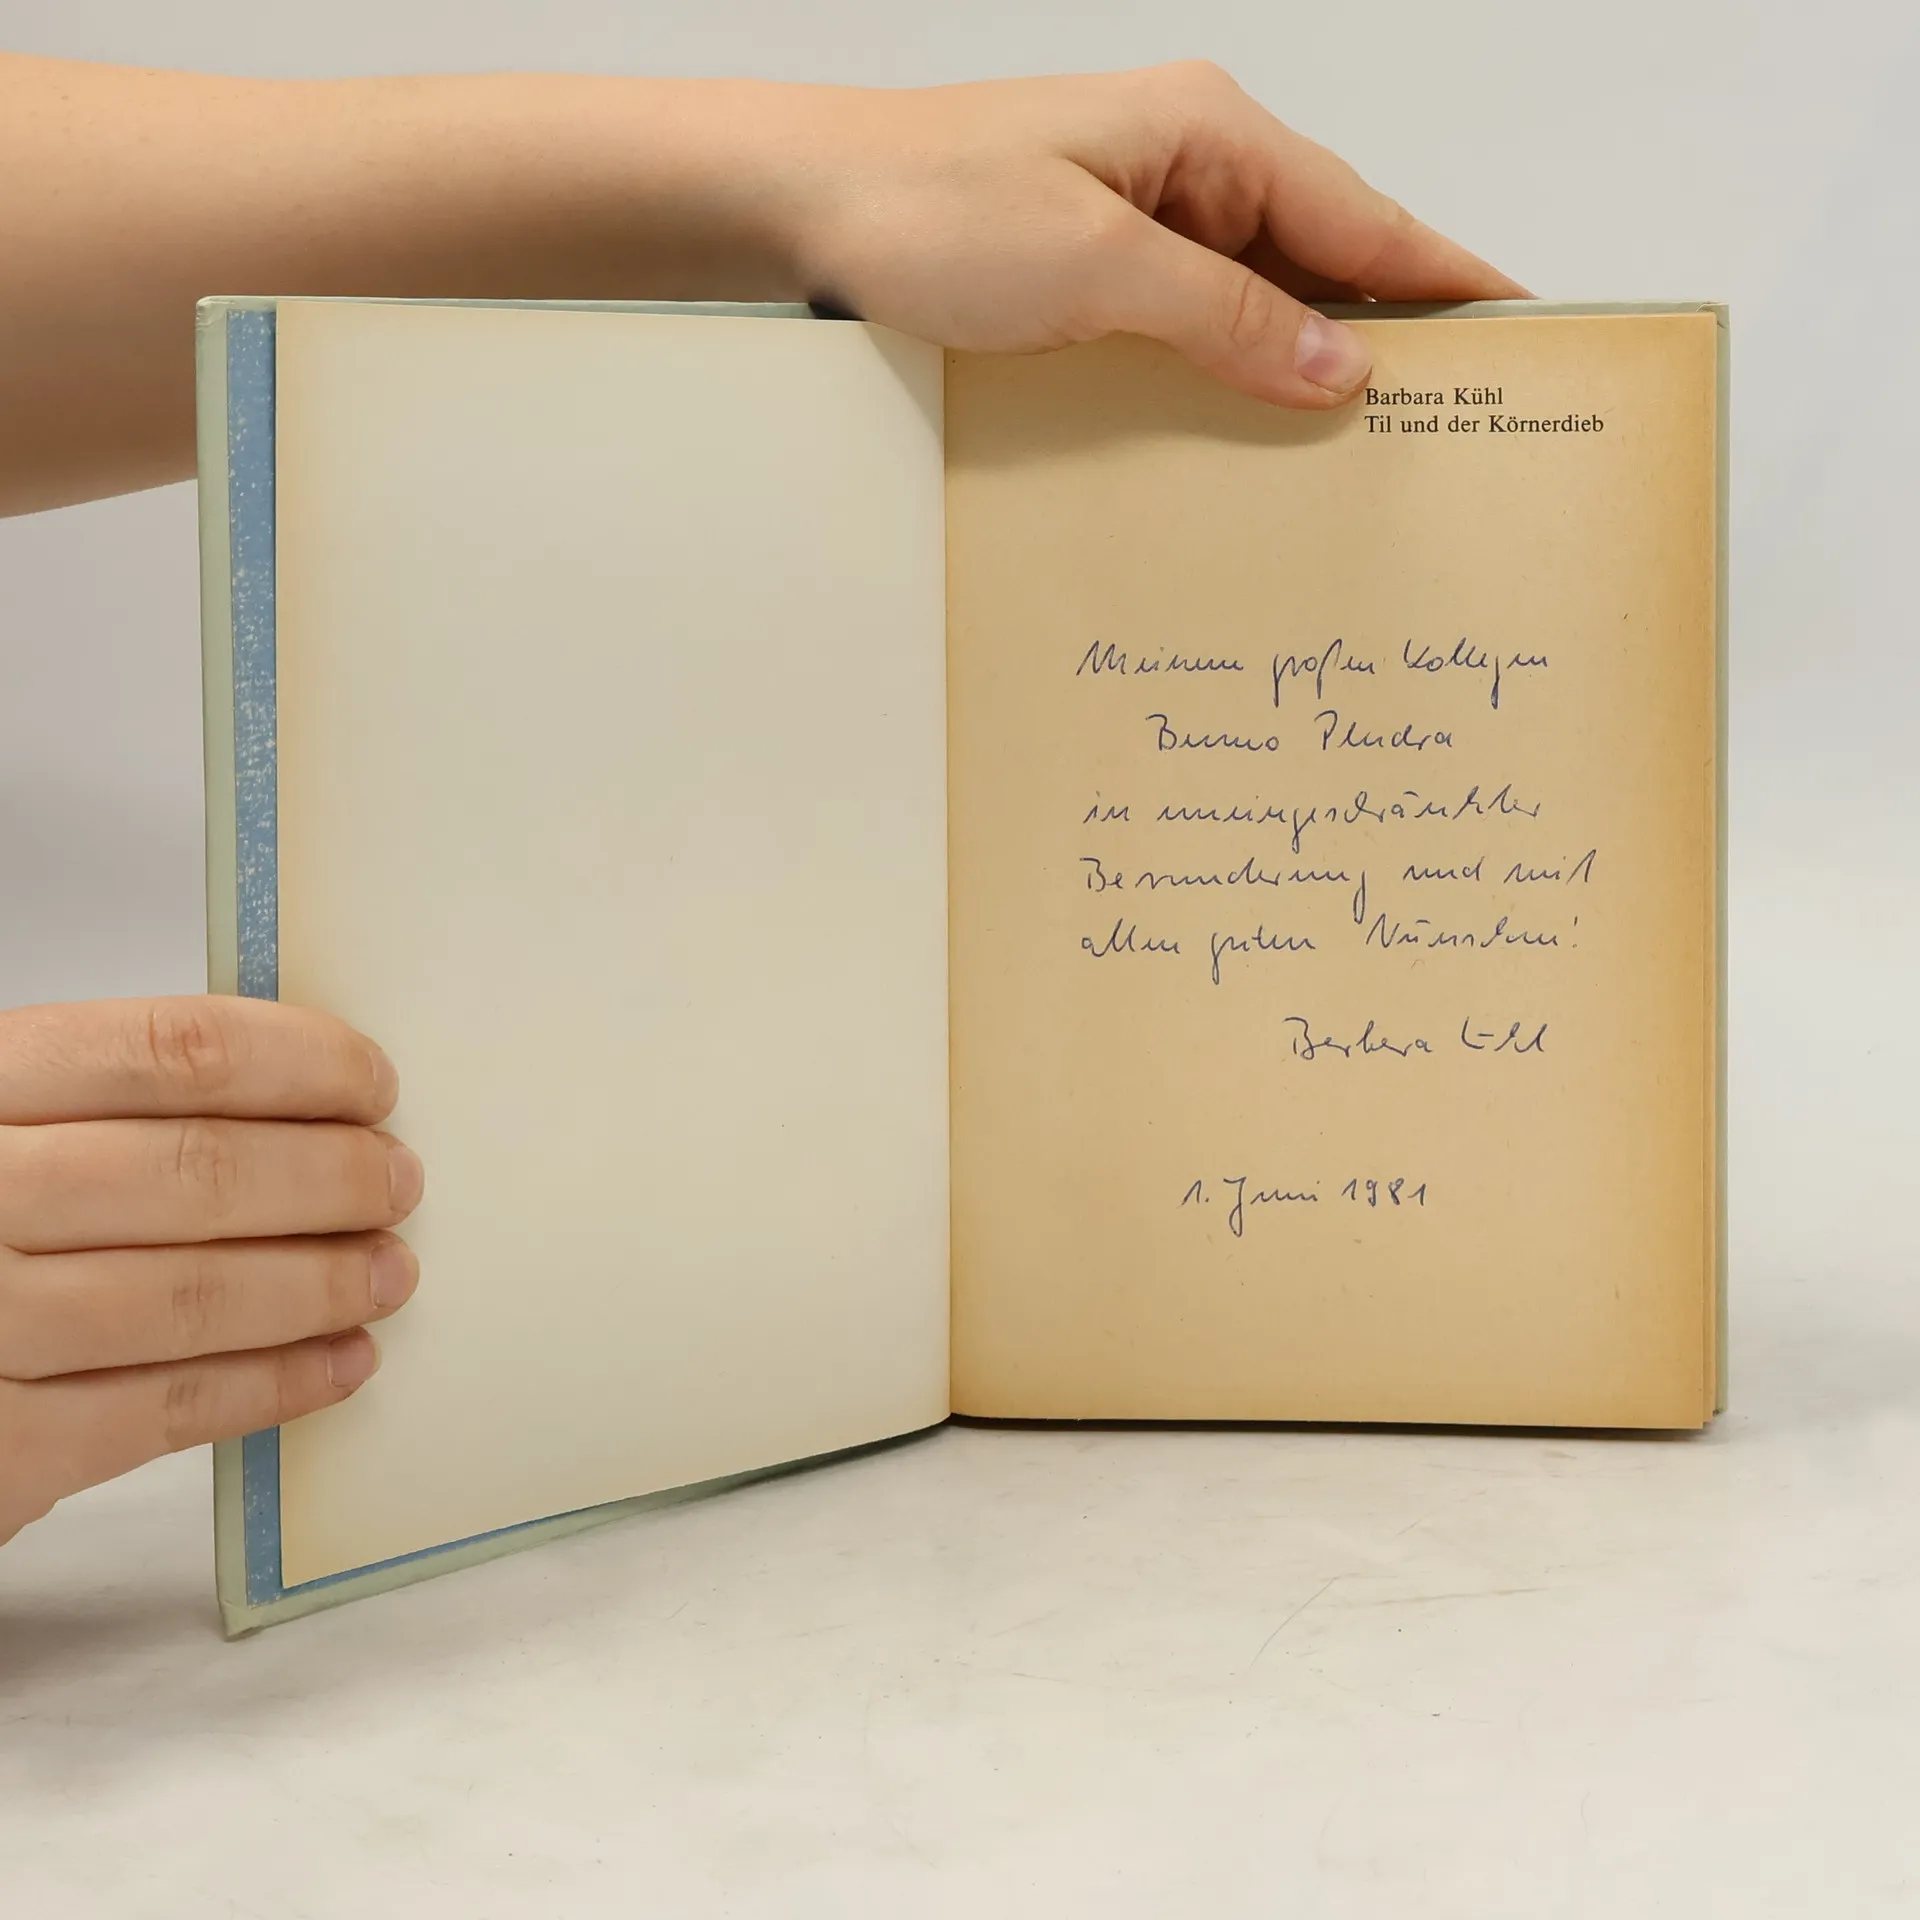 Barbara Kühl
Til und der Körnerdieb
Meinem großen Kollegen
Benno Pludra
in uneingeschränkter
Bewunderung und mit
allen guten Wünschen!
Barbara Kühl
1. Juni 1981